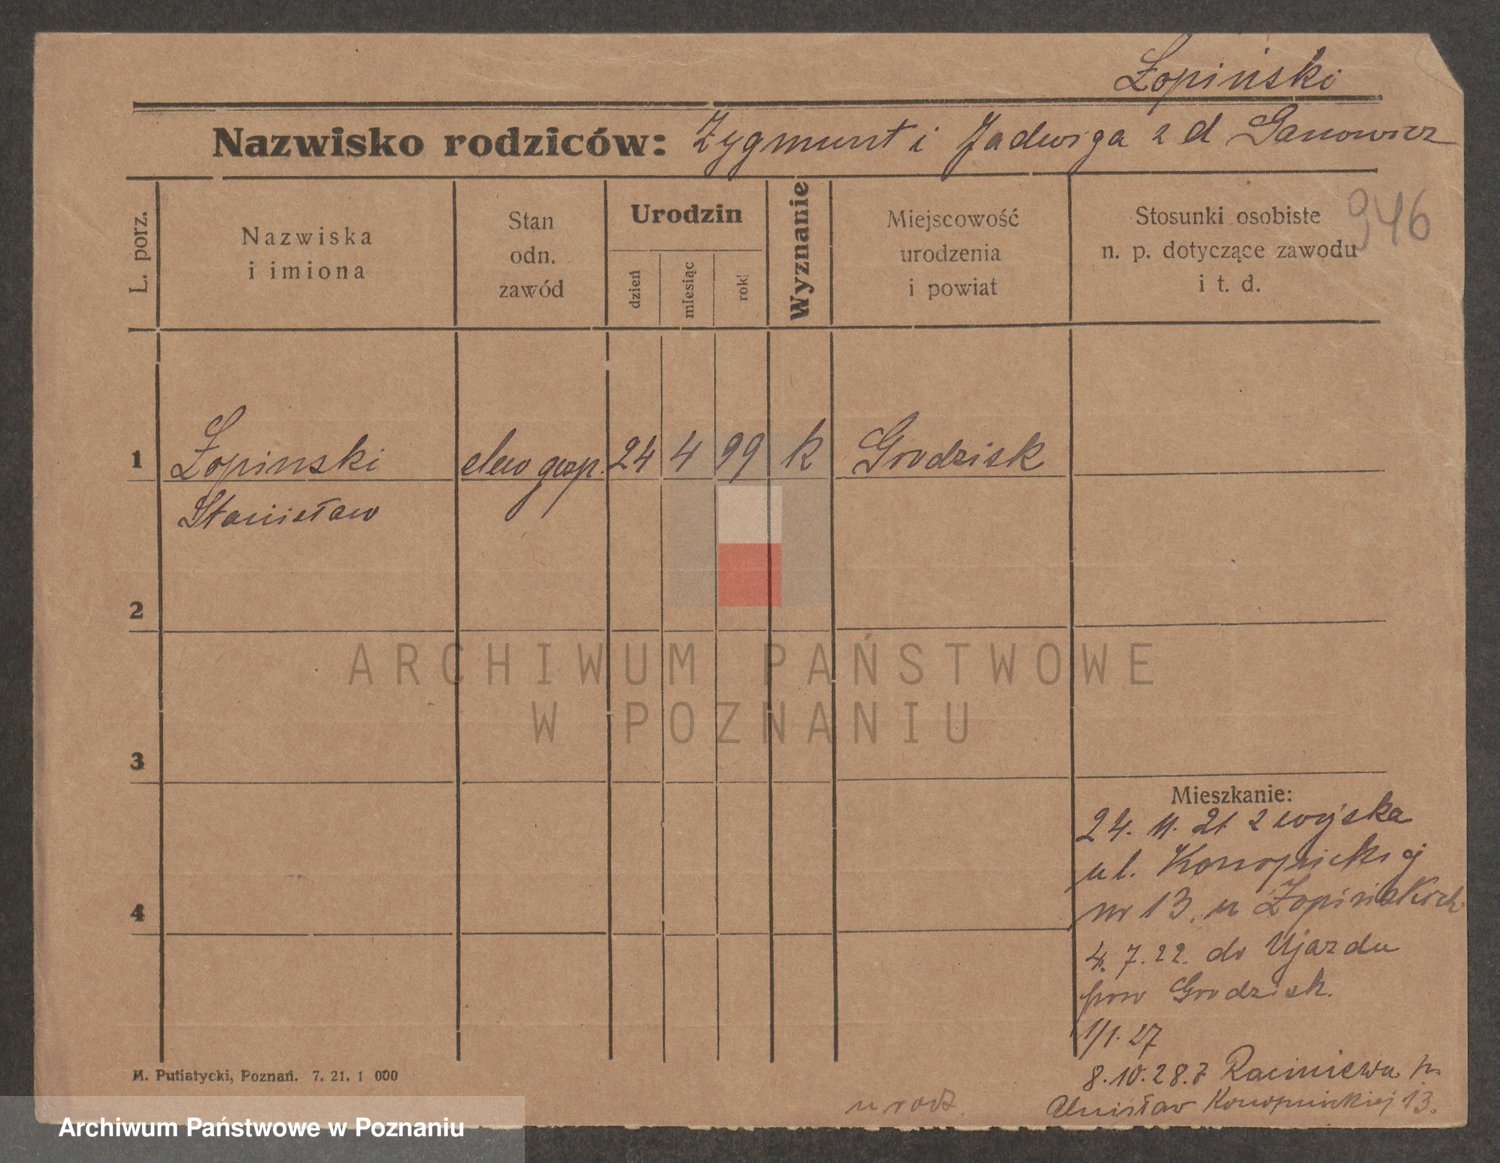 Łopiński
Nazwisko rodziców: Zygmunt i Jadwiga z d Ganowicz
L. porz.
Nazwiska
i imiona
Stan
odn.
zawód
Urodzin
dzień
miesiąc
rok
Wyznanie
Miejscowość
urodzenia
i powiat
Stosunki osobiste
n. p. dotyczące zawodu
i t. d.
946
1 Łopinski elew gosp. 24 4 99 k Grodzisk
Stanisław
2
ARCHIWUM PAŃSTWOWE
W POZNANIU
3
4
Mieszkanie:
24. 11. 21 z wojska
ul. Konopnickiej
nr 13. u Łopińskich
4. 7. 22. do Ujazdu
pow Grodzisk.
1/1. 27
8. 10. 28. z Raciniewa p.
Unisław Konopnickiej 13.
u rodz.
M. Putiatycki, Poznań. 7. 21. 1 000
Archiwum Państwowe w Poznaniu